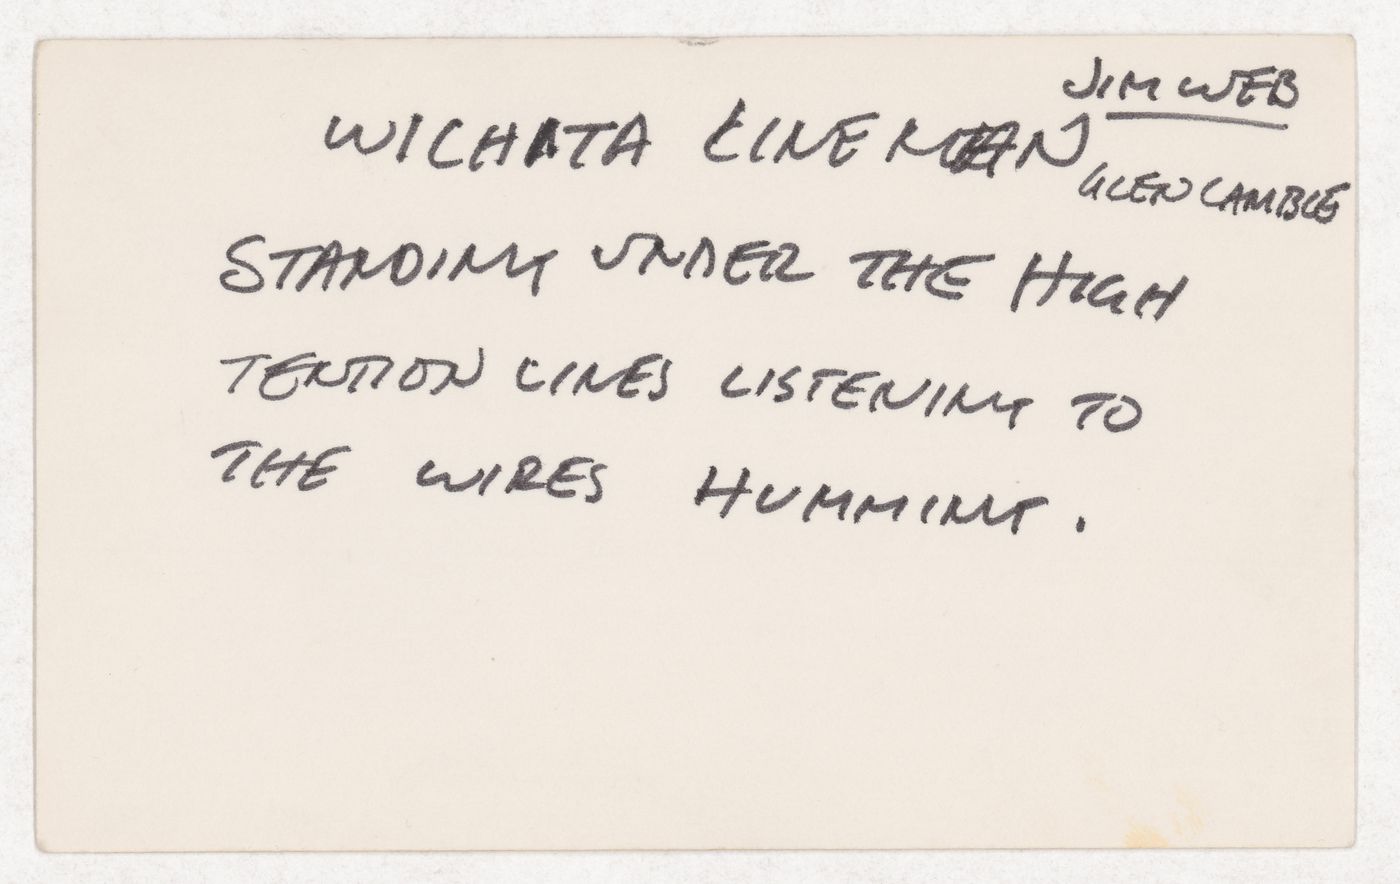 JIM WEB
WICHATA LINEMAN
GLEN CAMBLE
STANDING UNDER THE HIGH
TENTION LINES LISTENING TO
THE WIRES HUMMING.